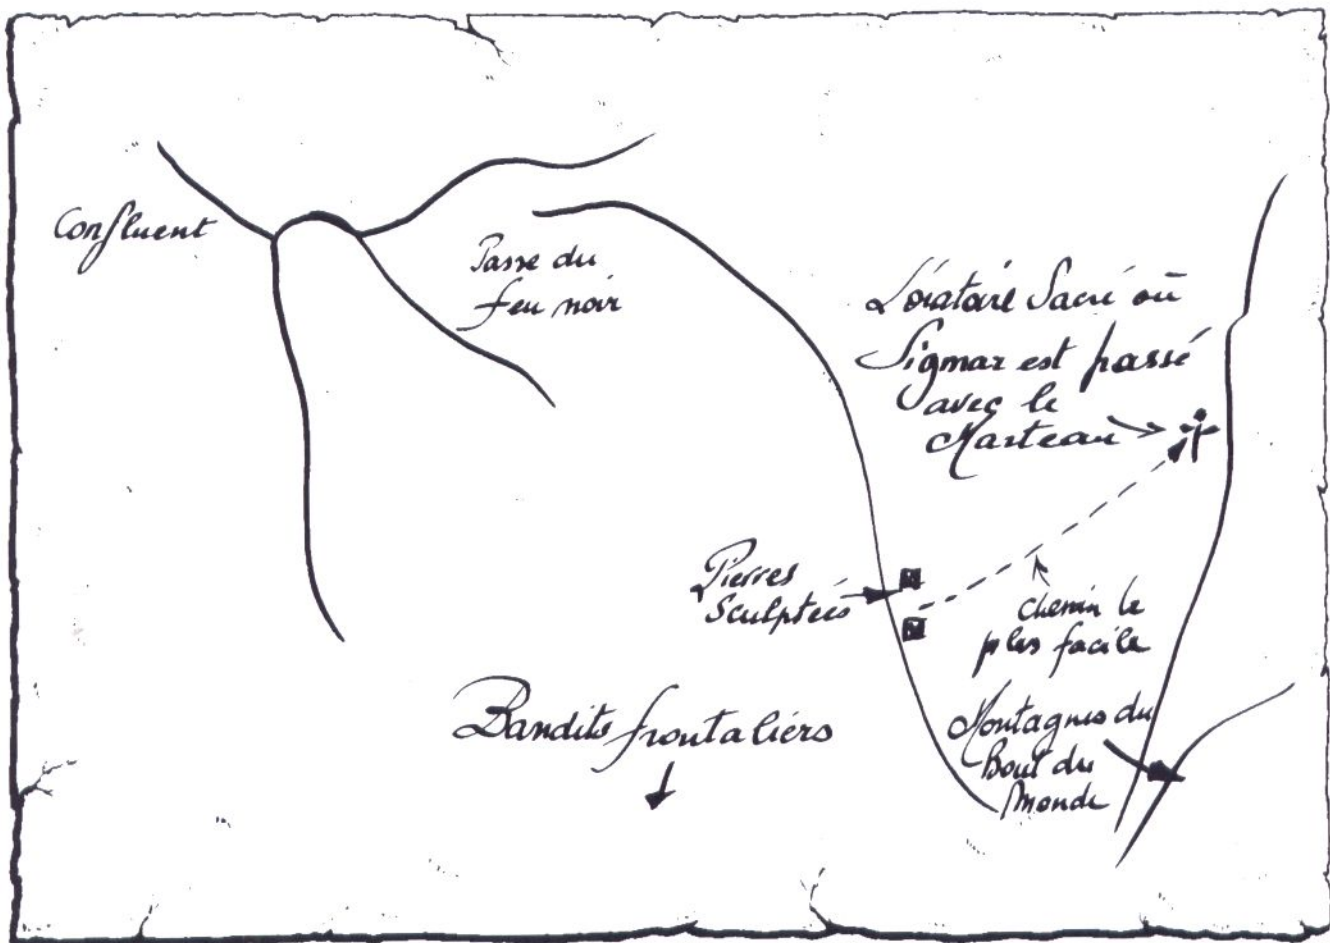 Confluent
Passe du
feu noir
L'oratoire Sacré où
Sigmar est passé
avec le
Marteau
Pierres
Sculptées
chemin le
plus facile
Bandits frontaliers
Montagnes du
Bout du
Monde